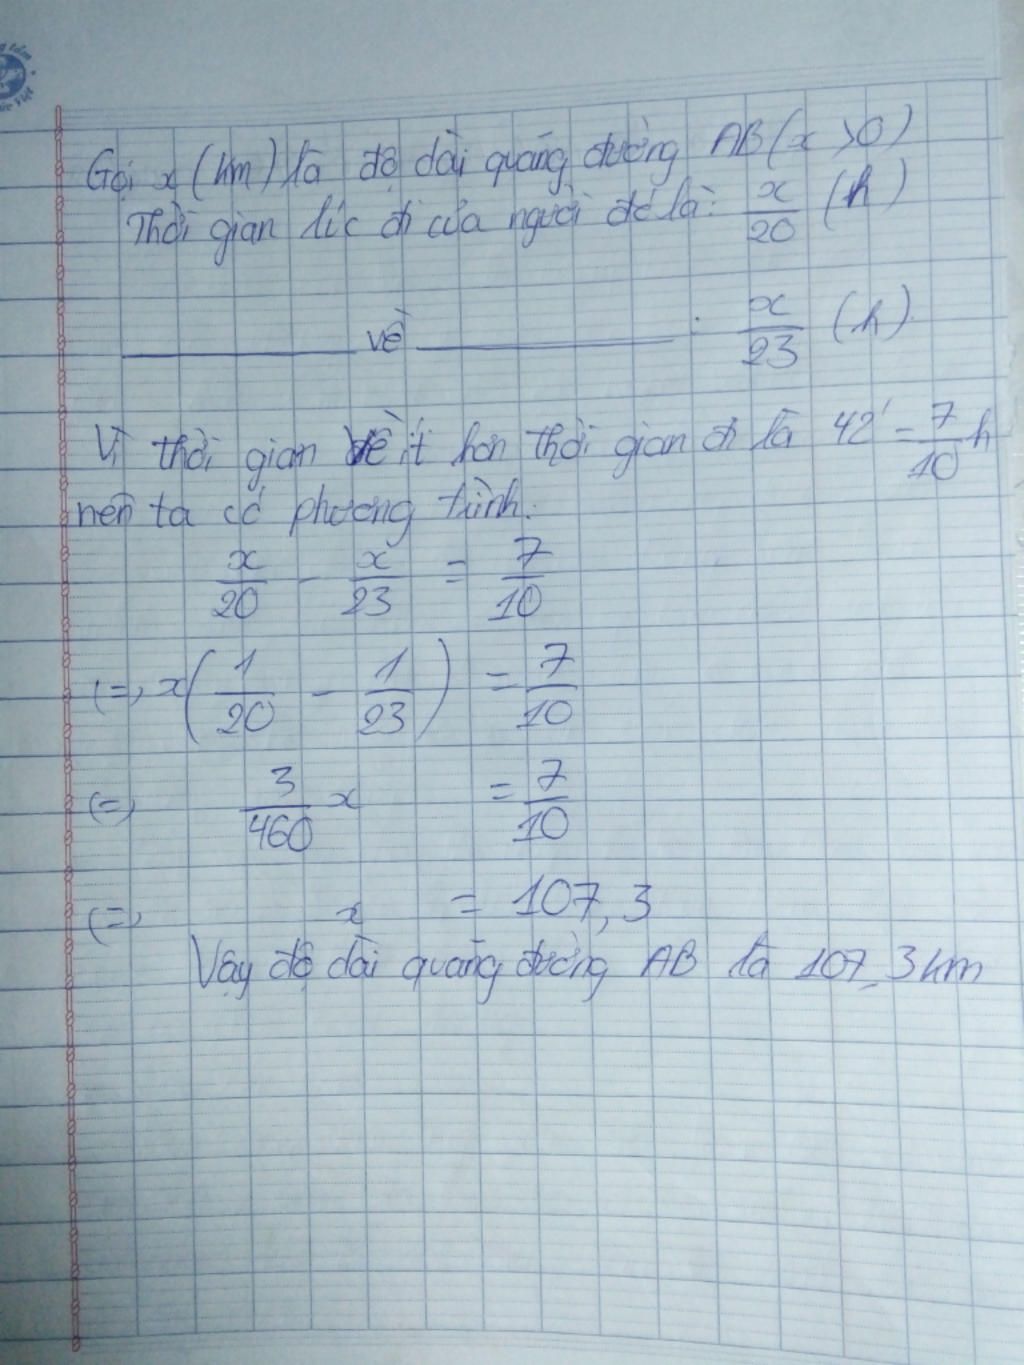 Gọi x (km) là độ dài quãng đường AB (x > 0)
Thời gian lúc đi của người đó là: x/20 (h)
về : x/23 (h).
Vì thời gian về ít hơn thời gian đi là 42' = 7/10 h
nên ta có phương trình:
x/20 - x/23 = 7/10
(=) x(1/20 - 1/23) = 7/10
(=) 3/460 x = 7/10
(=) x = 107,3
Vậy độ dài quãng đường AB là 107,3 km